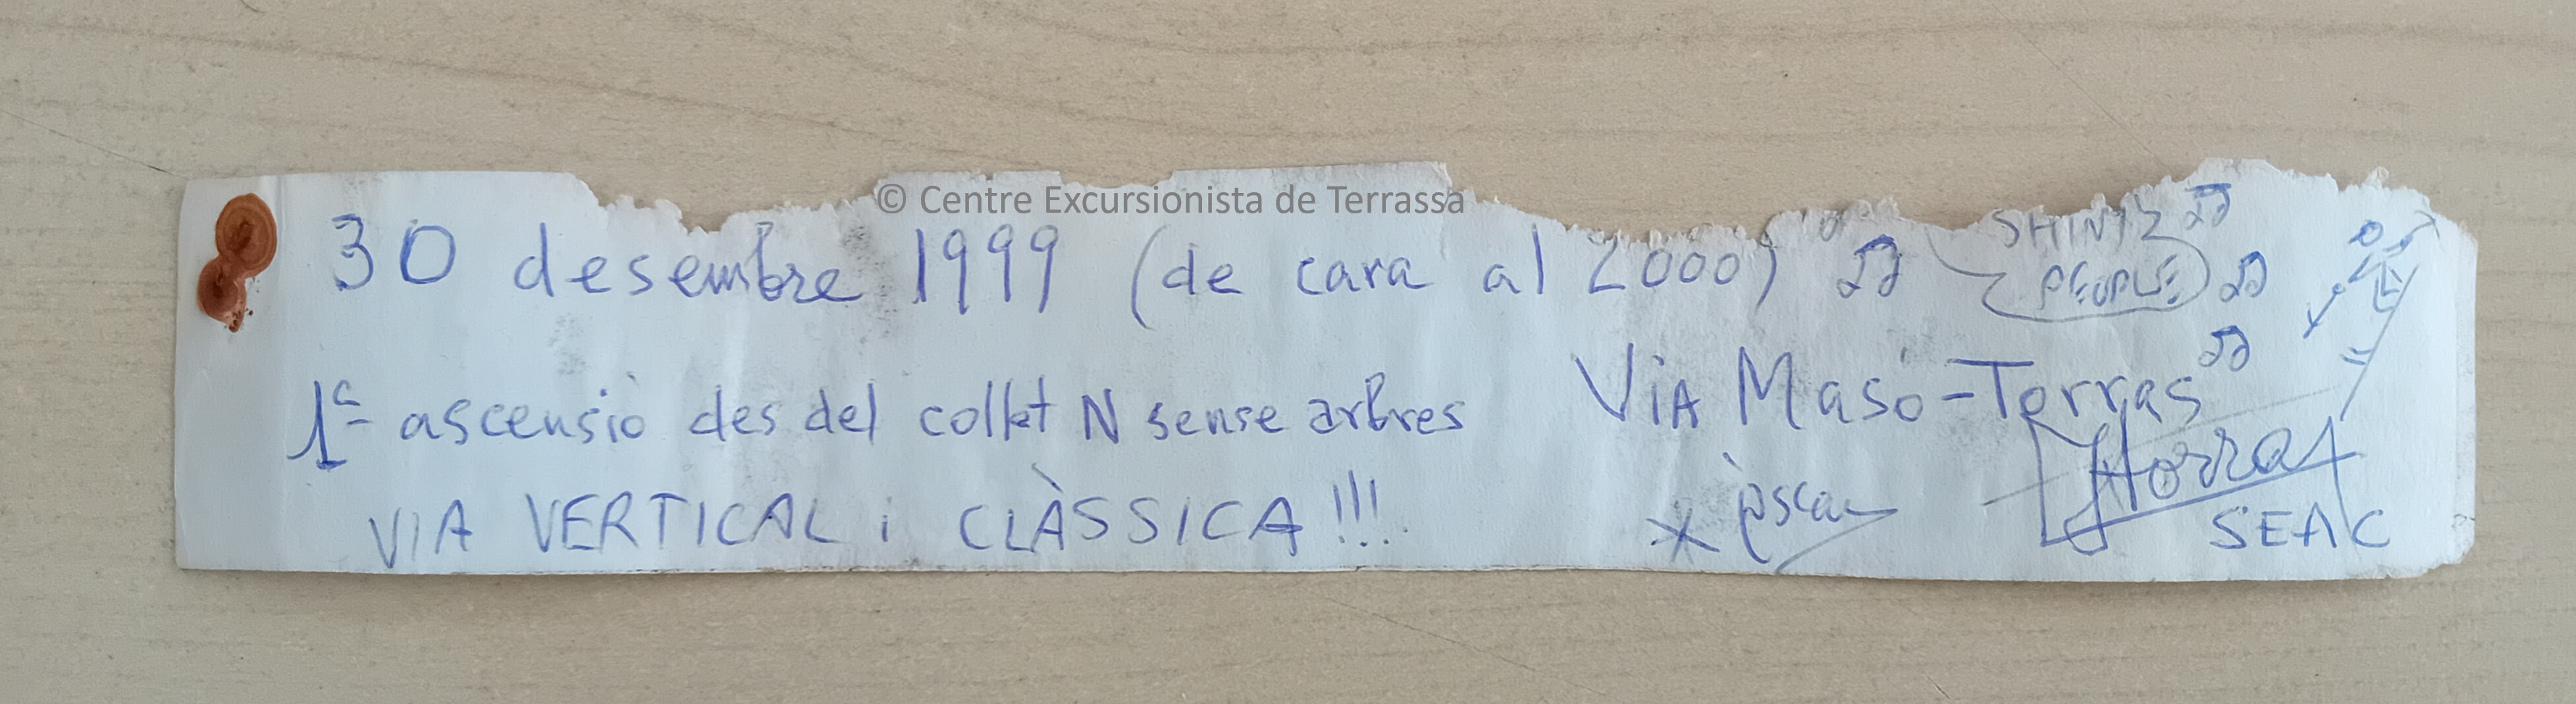 © Centre Excursionista de Terrassa
30 desembre 1999 (de cara al 2000)
SHINY
PEOPLE
1ª ascensió des del collet N sense arbres
VIA VERTICAL i CLÀSSICA!!!
VIA Masó-Torras
SEAC